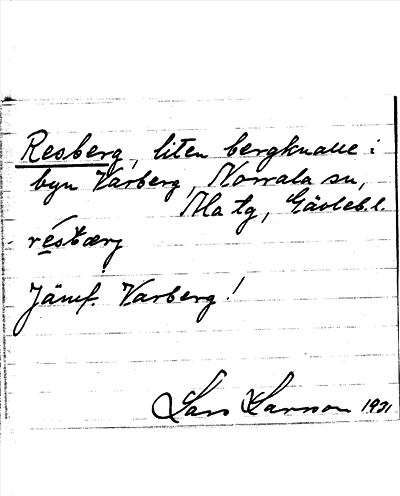 Resberg, liten bergknalle i
byn Varberg, Norrala sn,
Ala tg, Gävleb. l.
réstærj
Jämf. Varberg!
Lars Larsson 1931